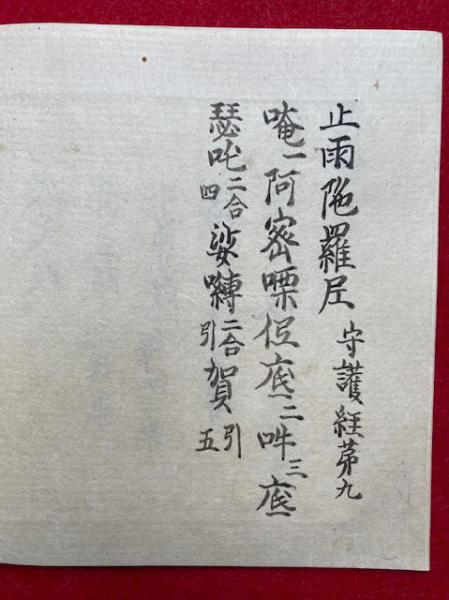 止雨陁羅尼 守護経苐九
唵一阿蜜㗚低底二吽三底
瑟吒二合四娑嚩二合引賀引五